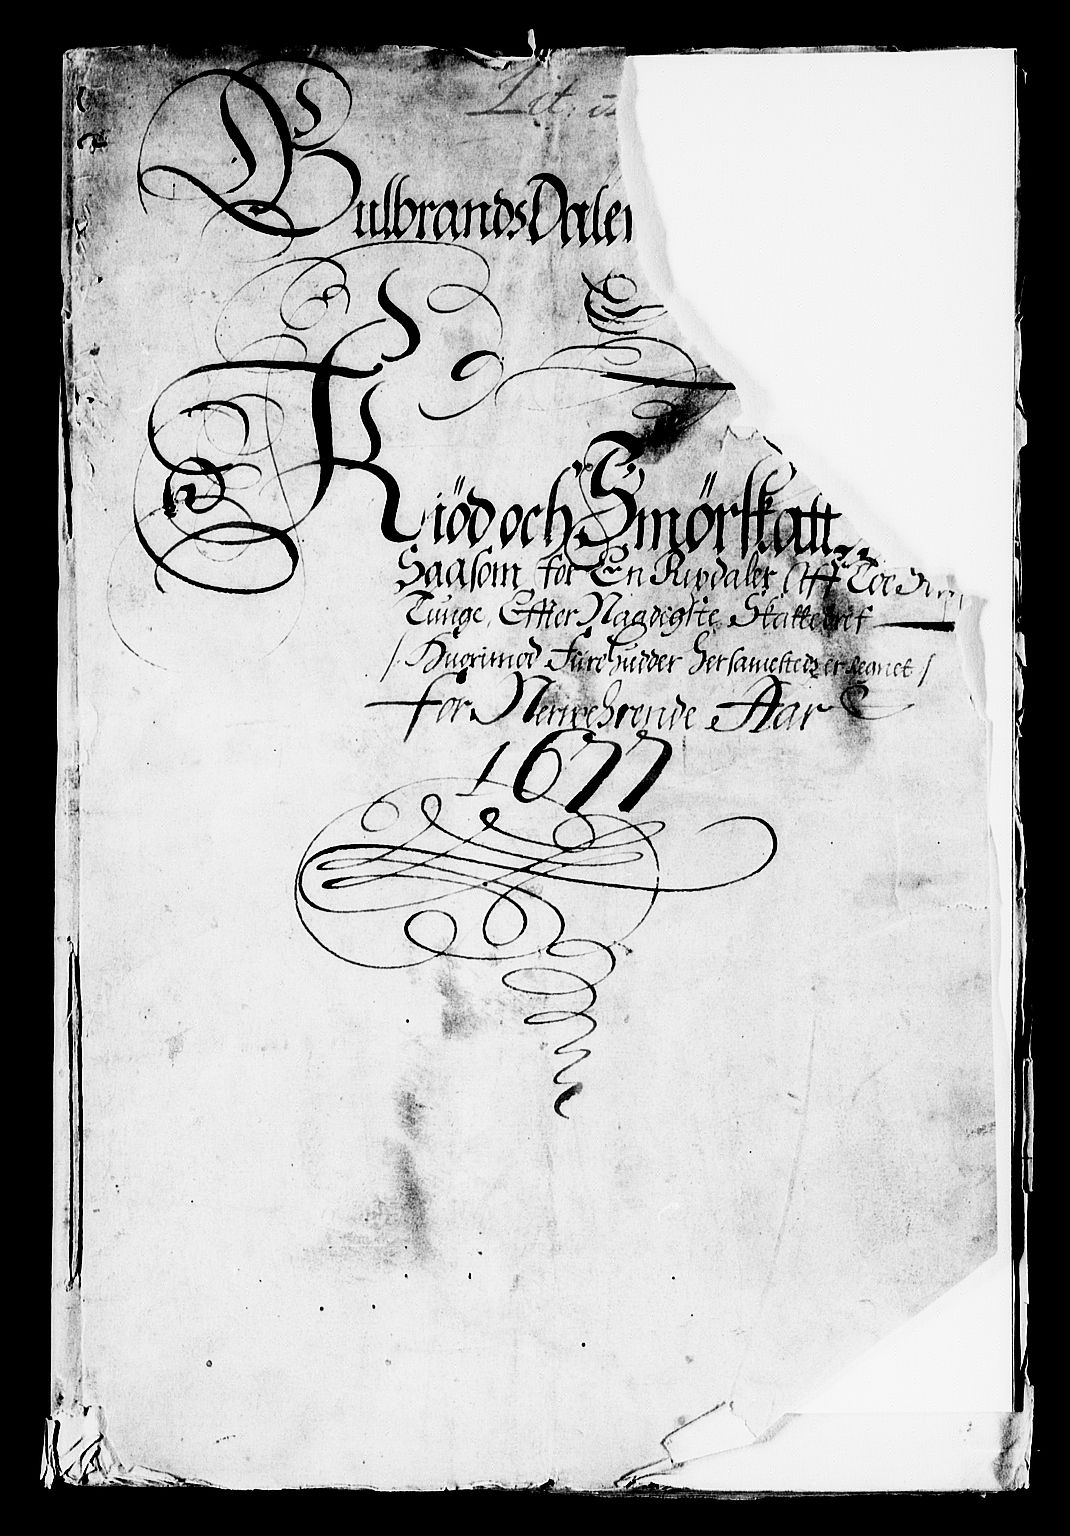 Lit:
GulbrandsDalen
Kiöd och Smörskatt
Saasom for En Rixdaler Aff Toe
Tunge, Effter Naadigste Skattebref
/ Huorimod Furehudder hersammestedz er regnet /
for Nerwehrende Aar
1677